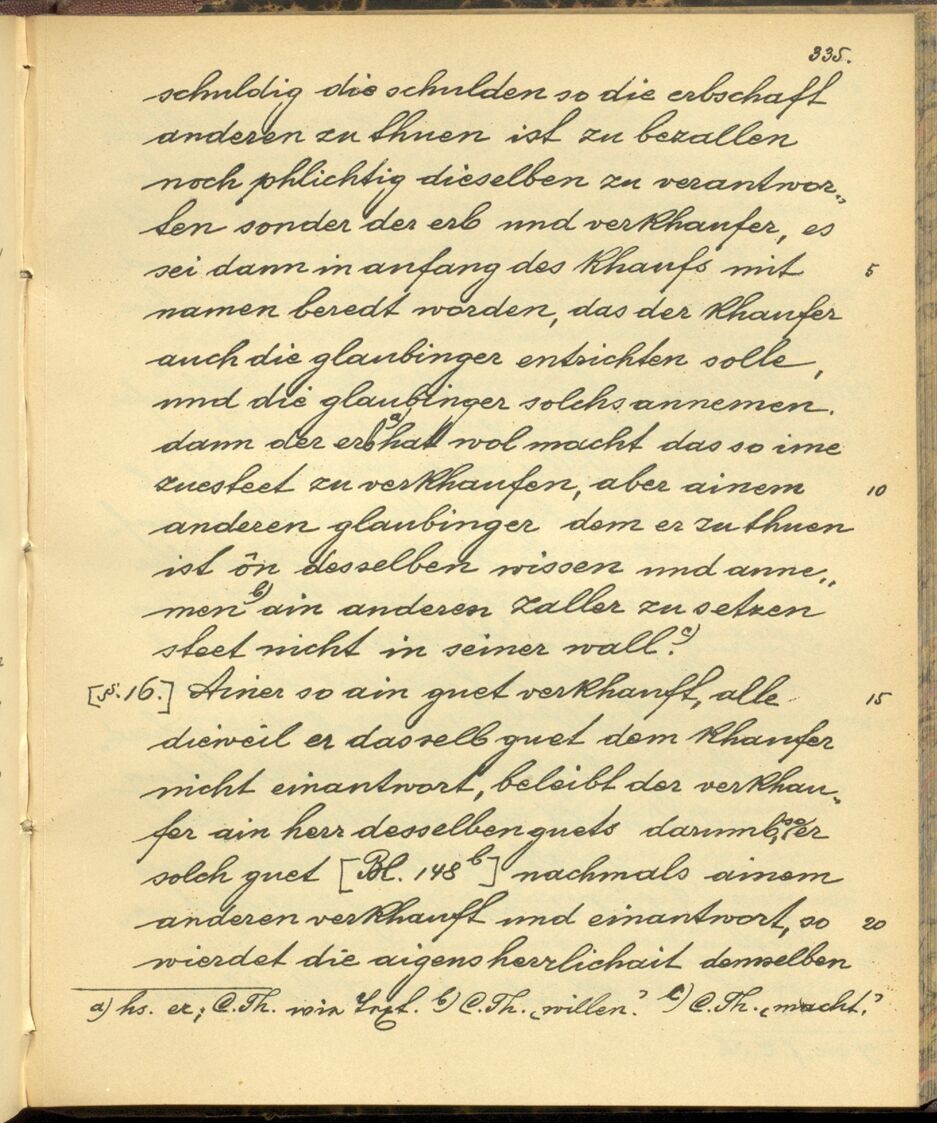 335.
schuldig die schulden so die erbschaft
anderen zu thuen ist zu bezallen
noch phlichtig dieselben zu verantwor„
ten sonder der erb und verkhaufer, es
sei dann in anfang des khaufs mit 5
namen beredt worden, das der khaufer
auch die glaubinger entrichten solle,
und die glaubinger solchs annemen.
dann der erb a) hat wol macht das so ime
zuesteet zu verkhaufen, aber ainem 10
anderen glaubinger dem er zu thuen
ist ôn desselben wissen und anne„
men b) ain anderen zaller zu setzen
steet nicht in seiner wall. c)
[§. 16.] Ainer so ain guet verkhauft, alle 15
dieweil er dasselb guet dem khaufer
nicht einantwort, beleibt der verkhau„
fer ain herr desselben guets darumb, so er
solch guet [Bl. 148 b] nachmals ainem
anderen verkhauft und einantwort, so 20
wierdet die aigensherrlichait demselben
a) hs. er; C.Th. wie Text. b) C.Th. „willen“. c) C.Th. „macht“.